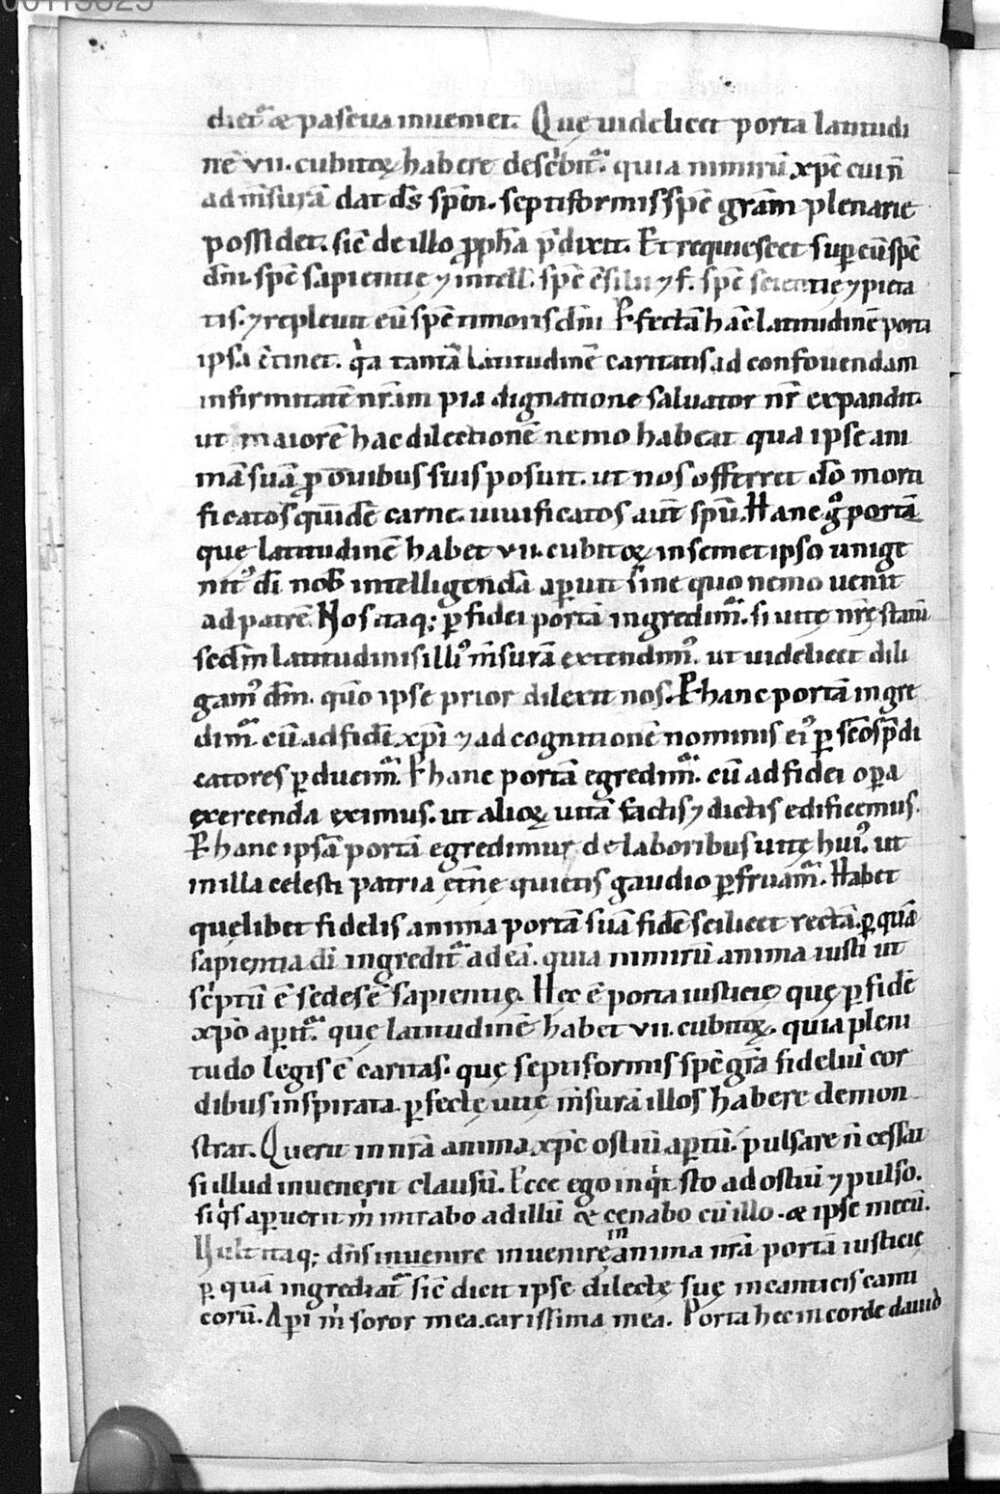 00113825
dietᷣ & pascua inueniet. Quę uidelicet porta latitudi
nē vii. cubitoꝝ habere describitᷣ. quia nimirū xp̄c cui ñ
ad m̄surā dat d̄s sp̄m. septiformis sp̄c gr̄am plenarie
possidet. sic̄ de illo ꝓph̄a p̄dixit. Et requiescet suꝑ eū sp̄c
dn̄i. sp̄c sapientię ⁊ intell̄. sp̄c c̄silii ⁊ f. sp̄c scientię ⁊ pieta
tis. ⁊ repleuit eū sp̄c timoris dn̄i. Ꝑfectā hāc latitudinē porta
ipsa ↄ̄tinet. q̇a tantā latitudinē caritatis ad confouendam
infirmitatē nr̄am pia dignatione saluator nr̄ expandit.
ut maiorē hac dilectionē nemo habeat qua ipse ani
mā suā ꝓ ouibus suis posuit. ut nos offerret dō morti
ficatos quidē carne. uiuificatos aūt spū. Hanc gͦ portā
quę latitudinē habet vii. cubitoꝝ in semetipso unige
nitꝰ dī nob̄ intelligendā aꝑuit sine quo nemo uenit
ad patrē. Nos itaq; ꝑ fidei portā ingredimᷣ. si uitę nr̄ę statū
scd̄m latitudinis illiꝰ m̄surā extendimꝰ. ut uidelicet dili
gamꝰ dn̄m. quō ipse prior dilexit nos. Ꝑ hanc portā ingre
dimᷣ. cū ad fidē xp̄i ⁊ ad cognitionē nominis eiꝰ ꝑ sc̄os p̄di
catores ꝑducimᷣ. Ꝑ hanc portā egredimᷣ. cū ad fidei oꝑa
exercenda eximus. ut alioꝝ uitā factis ⁊ dictis edificemus.
Ꝑ hanc ipsā portā egredimur de laboribus uitę huiꝰ. ut
in illa celesti patria et̄nę quietis gaudio ꝑfruamᷣ. Habet
quęlibet fidelis anima portā suā fidē scilicet rectā. ꝑ quā
sapientia dī ingreditᷣ ad eā. quia nimirū anima iusti ut
sc̄ptū ē sedes ē sapientię. Hec ē porta iusticię quę ꝑ fidē
xp̄o aꝑitᷣ. quę latitudinē habet vii. cubitoꝝ. quia pleni
tudo legis ē caritas. quę septiformis sp̄c gr̄a fideliū cor
dibus inspirata ꝑfectę uitę m̄surā illos habere demon
strat. Querit in nr̄a anima xp̄c ostiū aꝑtū. pulsare ñ cessat
si illud inuenerit clausū. Ecce ego inqͥt sto ad ostiū ⁊ pulso.
si qͥs aꝑuerit m̄ intrabo ad illū & cenabo cū illo. & ipse mecū.
Uult itaq; dn̄s inuenire inuenire in anima nr̄a portā iusticię
ꝑ quā ingrediatᷣ sic̄ dicit ipse dilectę suę in canticis canti
corū. Aꝑi m̄ soror mea. carissima mea. Porta hec in corde dauid